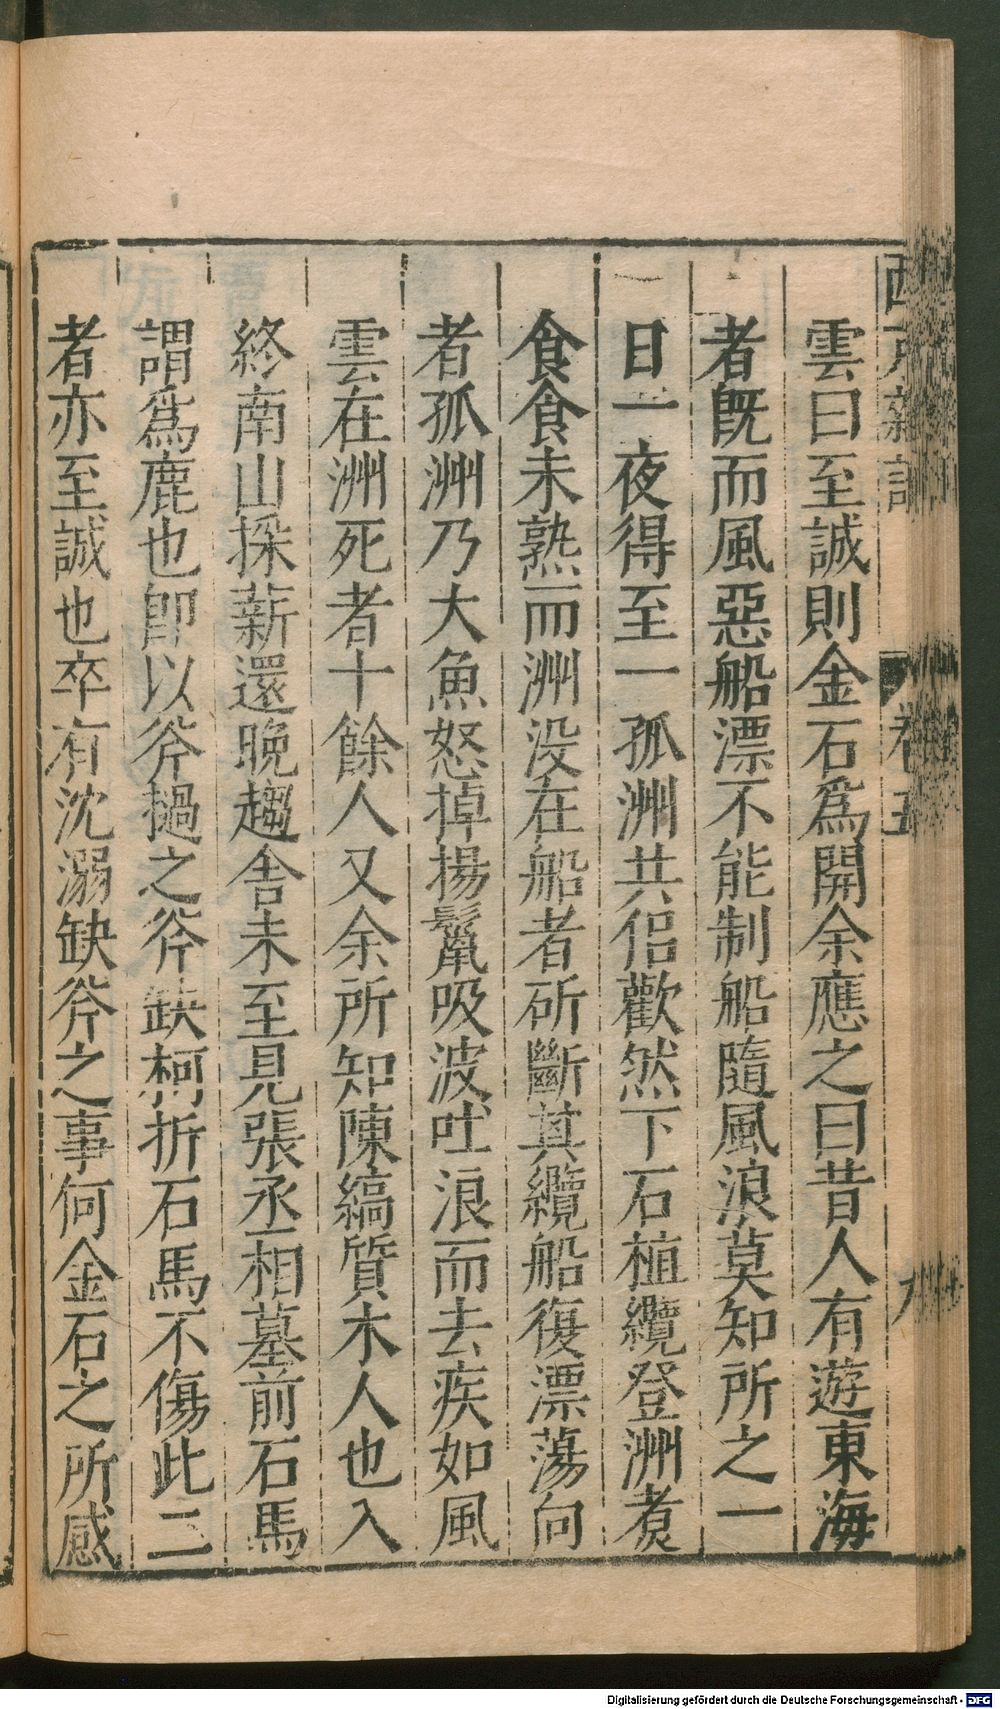 雲曰至誠則金石爲開余應之曰昔人有遊東海
者旣而風惡船漂不能制船隨風浪莫知所之一
日一夜得至一孤洲共侶歡然下石植纜登洲煑
食食未熟而洲没在船者斫斷其纜船復漂蕩向
者孤洲乃大魚怒掉揚鬣吸波吐浪而去疾如風
雲在洲死者十餘人又余所知陳縞質木人也入
終南山採薪還晚趨舍未至見張丞相墓前石馬
謂爲鹿也卽以斧撾之斧缺柯折石馬不傷此二
者亦至誠也卒有沈溺缺斧之事何金石之所感
卷五
Digitalisierung gefördert durch die Deutsche Forschungsgemeinschaft - DFG